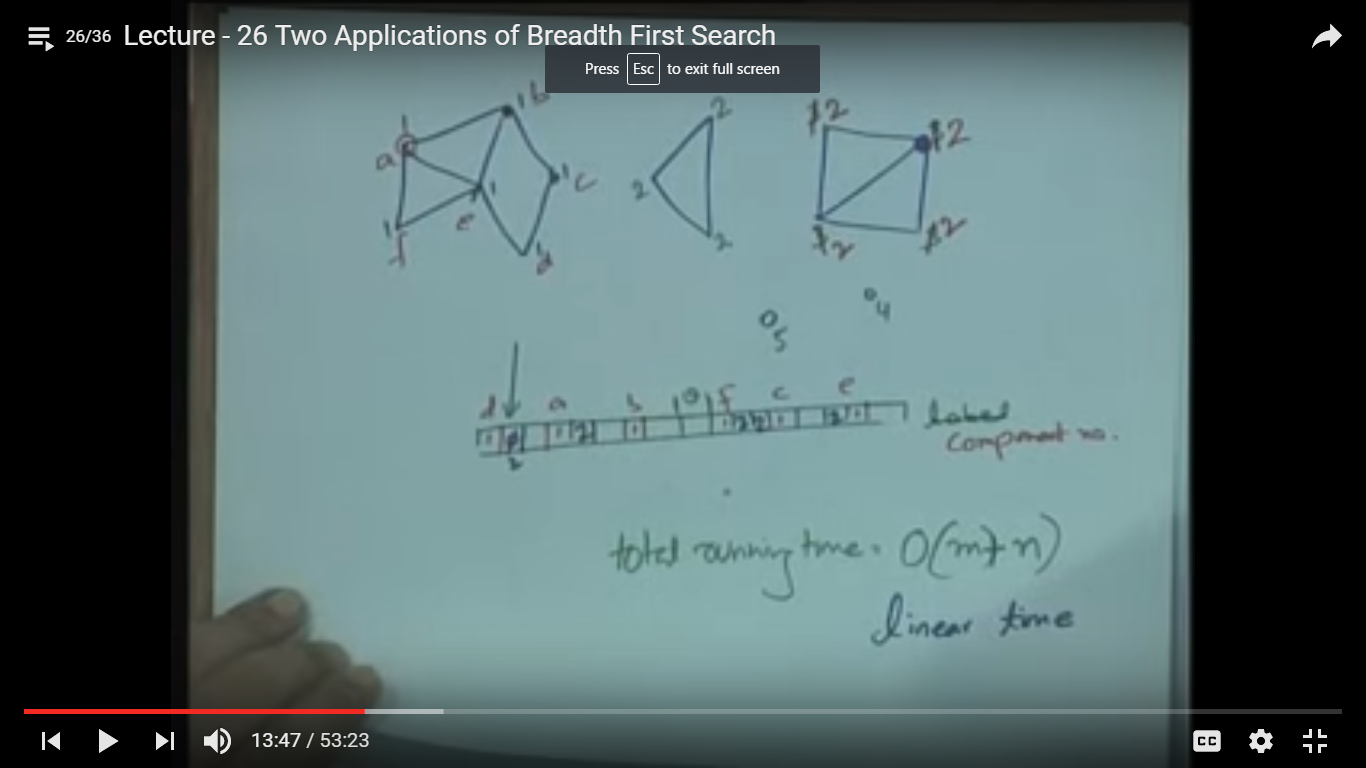 26/36 Lecture - 26 Two Applications of Breadth First Search
Press Esc to exit full screen
1 1 b 2 2 2
a 1 c 2
1 e 1 2 2 2
f 1 d
4
5
d a b 0 f c e
label
component no.
2
total running time = O(m+n)
linear time
13:47 / 53:23
CC